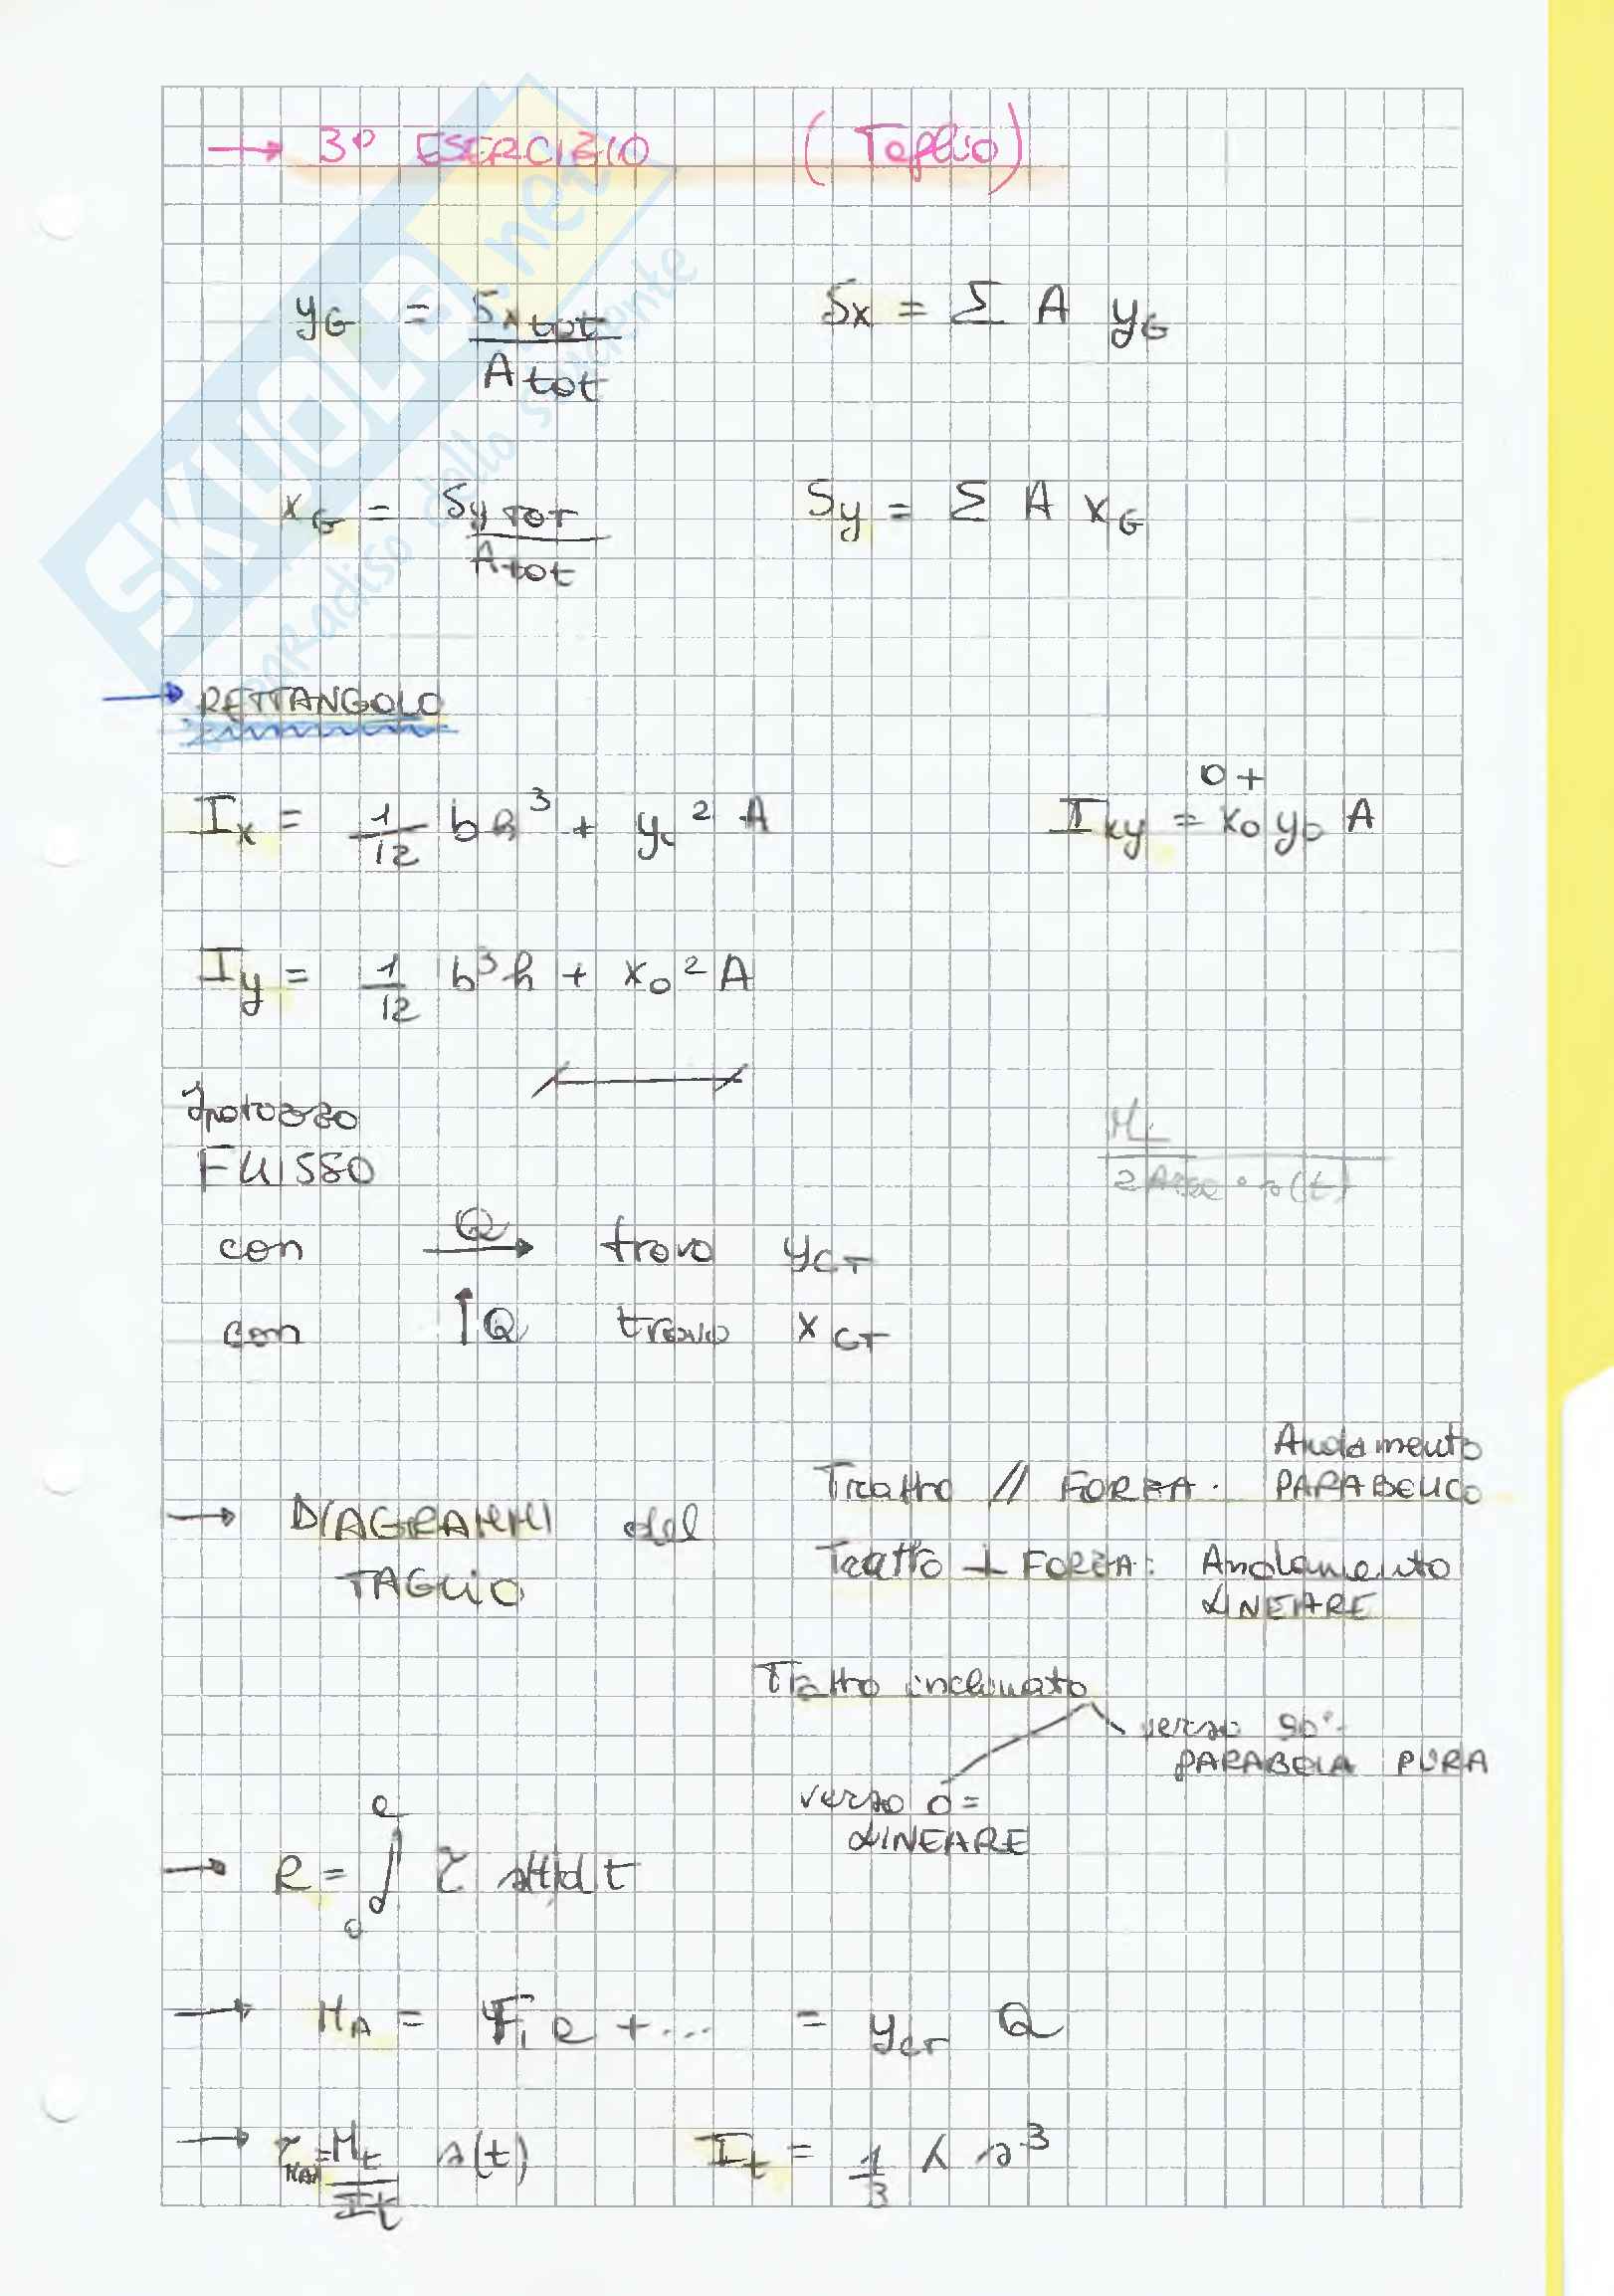 → 3° ESERCIZIO (Taglio)
yG = Sx tot / A tot    Sx = Σ A yG
xG = Sy TOT / A tot    Sy = Σ A xG
→ RETTANGOLO
Ix = 1/12 b h³ + y₀² A    Ixy = 0 + x₀ y₀ A
Iy = 1/12 b³ h + x₀² A
Ipotizzo
FLUSSO
con Q → trovo yCT
con ↑Q trovo xCT
→ DIAGRAMMI del
TAGLIO
Tratto // FORZA: Andamento
PARABOLICO
Tratto ⊥ FORZA: Andamento
LINEARE
Tratto inclinato
verso 90°
PARABOLA PURA
verso 0=
LINEARE
→ R = ∫ τ s(t) dt
→ MA = F₁ e + ... = yCT Q
→ τMAX = Mt / It s(t)    It = 1/3 λ s³
SKUOLA.net
paradiso dello studente